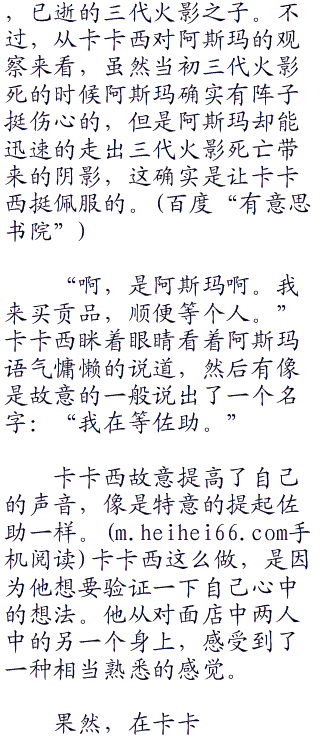 ，已逝的三代火影之子。不
过，从卡卡西对阿斯玛的观
察来看，虽然当初三代火影
死的时候阿斯玛确实有阵子
挺伤心的，但是阿斯玛却能
迅速的走出三代火影死亡带
来的阴影，这确实是让卡卡
西挺佩服的。(百度“有意思
书院”)
“啊，是阿斯玛啊。我
来买贡品，顺便等个人。”
卡卡西眯着眼睛看着阿斯玛
语气慵懒的说道，然后有像
是故意的一般说出了一个名
字：“我在等佐助。”
卡卡西故意提高了自己
的声音，像是特意的提起佐
助一样。(m.heihei66.com手
机阅读)卡卡西这么做，是因
为他想要验证一下自己心中
的想法。他从对面店中两人
中的另一个身上，感受到了
一种相当熟悉的感觉。
果然，在卡卡